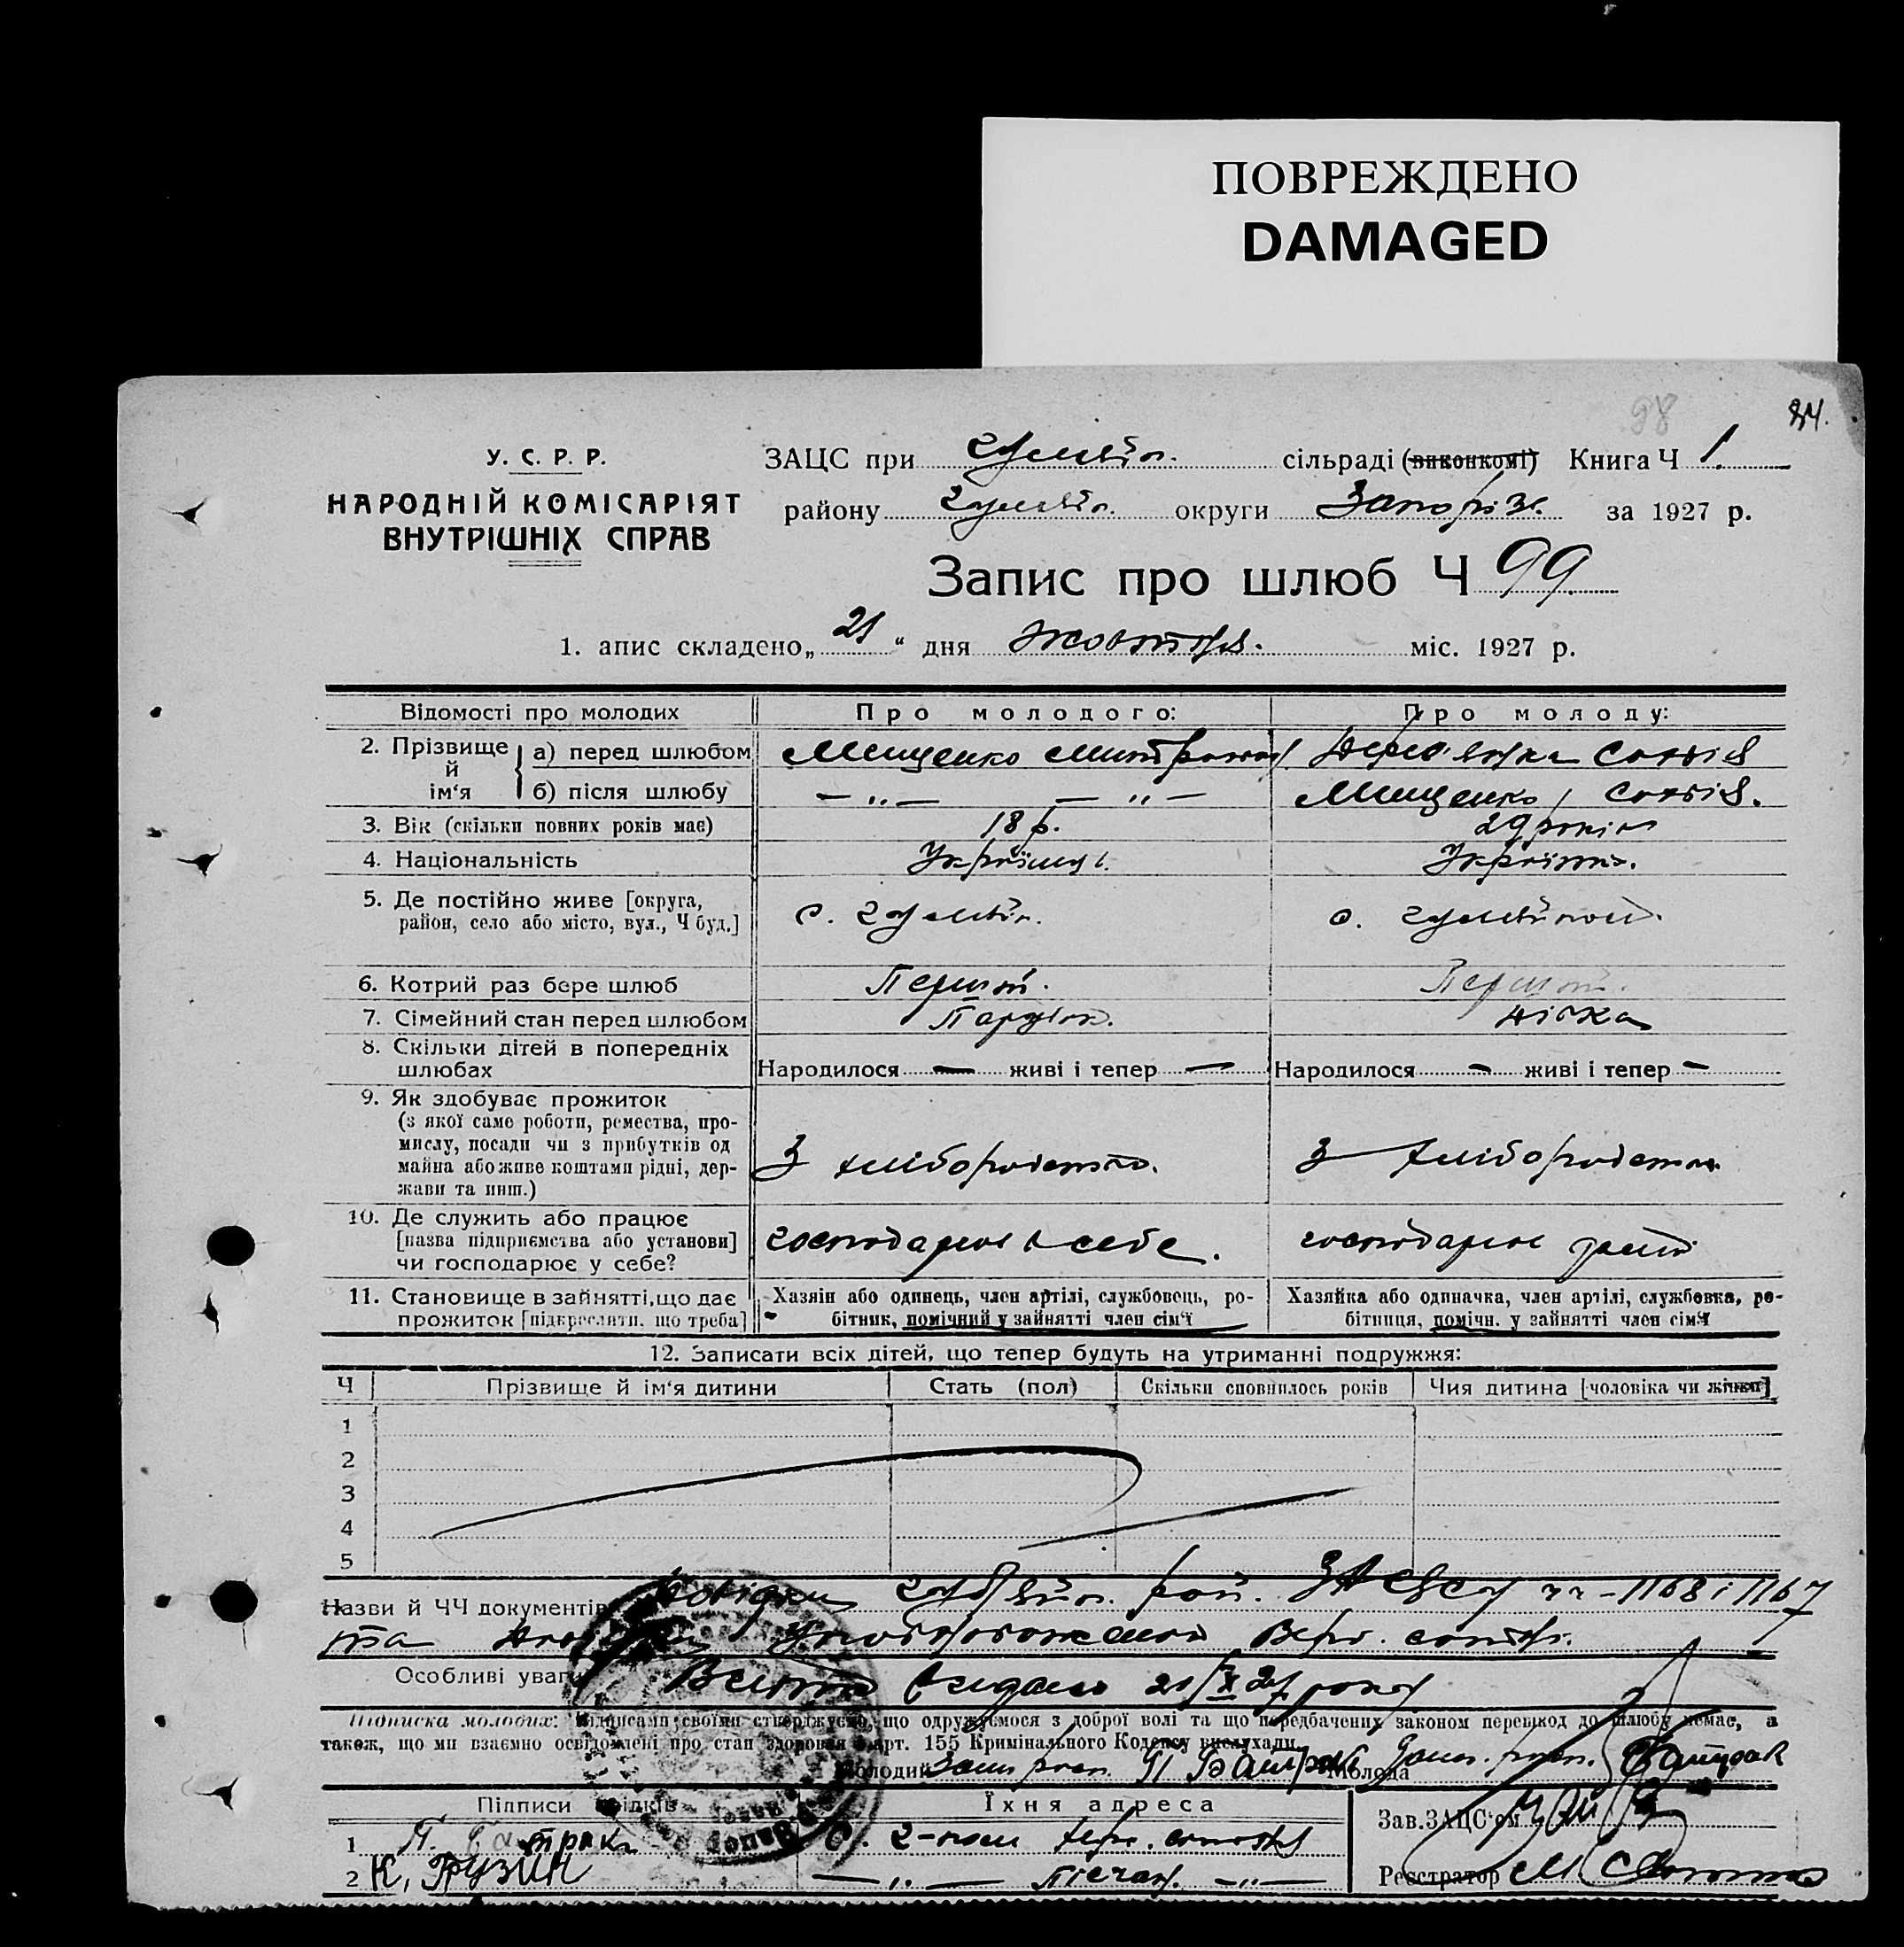 ПОВРЕЖДЕНО
DAMAGED
98 84.
У. С. Р. Р.
НАРОДНІЙ КОМІСАРІЯТ
ВНУТРІШНІХ СПРАВ
ЗАЦС при Гуляйп. сільраді (виконкомі) Книга Ч 1.
району Гуляйп. округи Запоріж. за 1927 р.
Запис про шлюб Ч 99
1. апис складено „21“ дня Жовтня. міс. 1927 р.
Відомості про молодих Про молодого: Про молоду:
2. Прізвище й ім‘я
а) перед шлюбом Мищенко Митрофан Софія
б) після шлюбу — „ — — „ — Мищенко Софія.
3. Вік (скільки повних років має) 18 р. 29 років
4. Національність Українці. Українка.
5. Де постійно живе [округа, район, село або місто, вул., Ч буд.] с. Гуляйп. с. Гуляйполі.
6. Котрий раз бере шлюб Перший. Перший.
7. Сімейний стан перед шлюбом Парубок. дівка
8. Скільки дітей в попередніх шлюбах Народилося — живі і тепер — Народилося — живі і тепер —
9. Як здобуває прожиток
(з якої саме роботи, ремества, промислу, посади чи з прибутків од майна або живе коштами рідні, держави та инш.)
З хліборобства. З хліборобства
10. Де служить або працює
[назва підприємства або установи]
чи господарює у себе?
господарює в себе. господарює
11. Становище в зайнятті, що дає прожиток [підкреслити, що треба]
Хазяін або одинець, член артілі, службовець, робітник, помічний у зайнятті член сім‘ї
Хазяйка або одиначка, член артілі, службовка, робітниця, помічн. у зайнятті член сім‘ї
12. Записати всіх дітей, що тепер будуть на утриманні подружжя:
Ч Прізвище й ім‘я дитини Стать (пол) Скільки сповнилось років Чия дитина [чоловіка чи жінки]
1
2
3
4
5
Назви й ЧЧ документів Довідки рай. ЗАГСу чч – 1168 і 1167
та
Особливі уваги видано 21/X 27 року
Підписка молодих: Підписами своїми стверджуємо, що одружуємося з доброї волі та що передбачених законом перешкод до шлюбу немає, а
також, що ми взаємно освідомлені про стан здоровля й арт. 155 Кримінального Кодексу вислухали.
Молодий Молода
Підписи свідків Їхня адреса Зав. ЗАЦС‘ом
1
2 К. Грузин — „ — — „ — Реєстратор